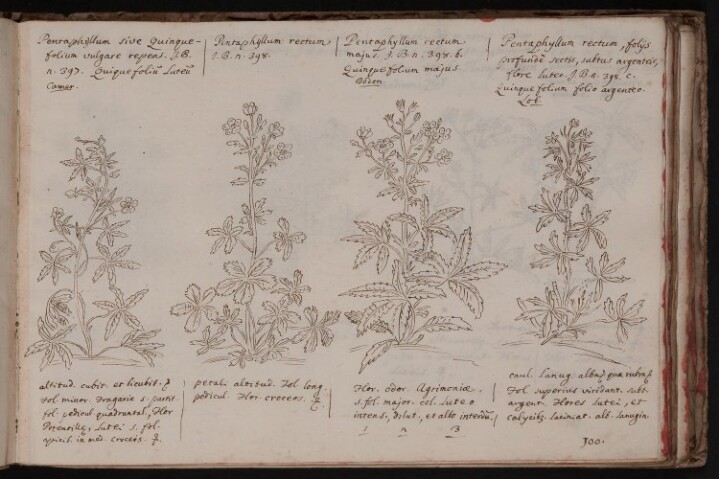 Pentaphyllum sive Quinque-
folium vulgare repens. J.B.
n. 397. Quiquefoliũ Luteũ
Camer.
Pentaphyllum rectum
J.B.n. 398.
Pentaphyllum rectum
majus. J.B.n. 398. b.
Quinquefolium majus
Dodon.
Pentaphyllum rectum, folijs
profundè sectis, subtus argenteis,
flore luteo J.B.n. 398. c.
Quinquefolium folio argenteo.
Lob.
altitud. cubit. et
Fol minor. Fragariæ s.
fol. pedicul quadrantal, Flor
lutei s. fol.
in med. croceis.
petal. altitud. Fol long.
pedicul. Flor. croceus.
Flor. odor Agrimoniæ.
s. fol. major. col. luteo
intens, dilut, et albo interdũ.
1 2 3
caul. lanug. albaq quæ rubra
Fol superius viridant. subt.
argent. Flores lutei, et
calycib laciniat. alb. lanugin.
300.